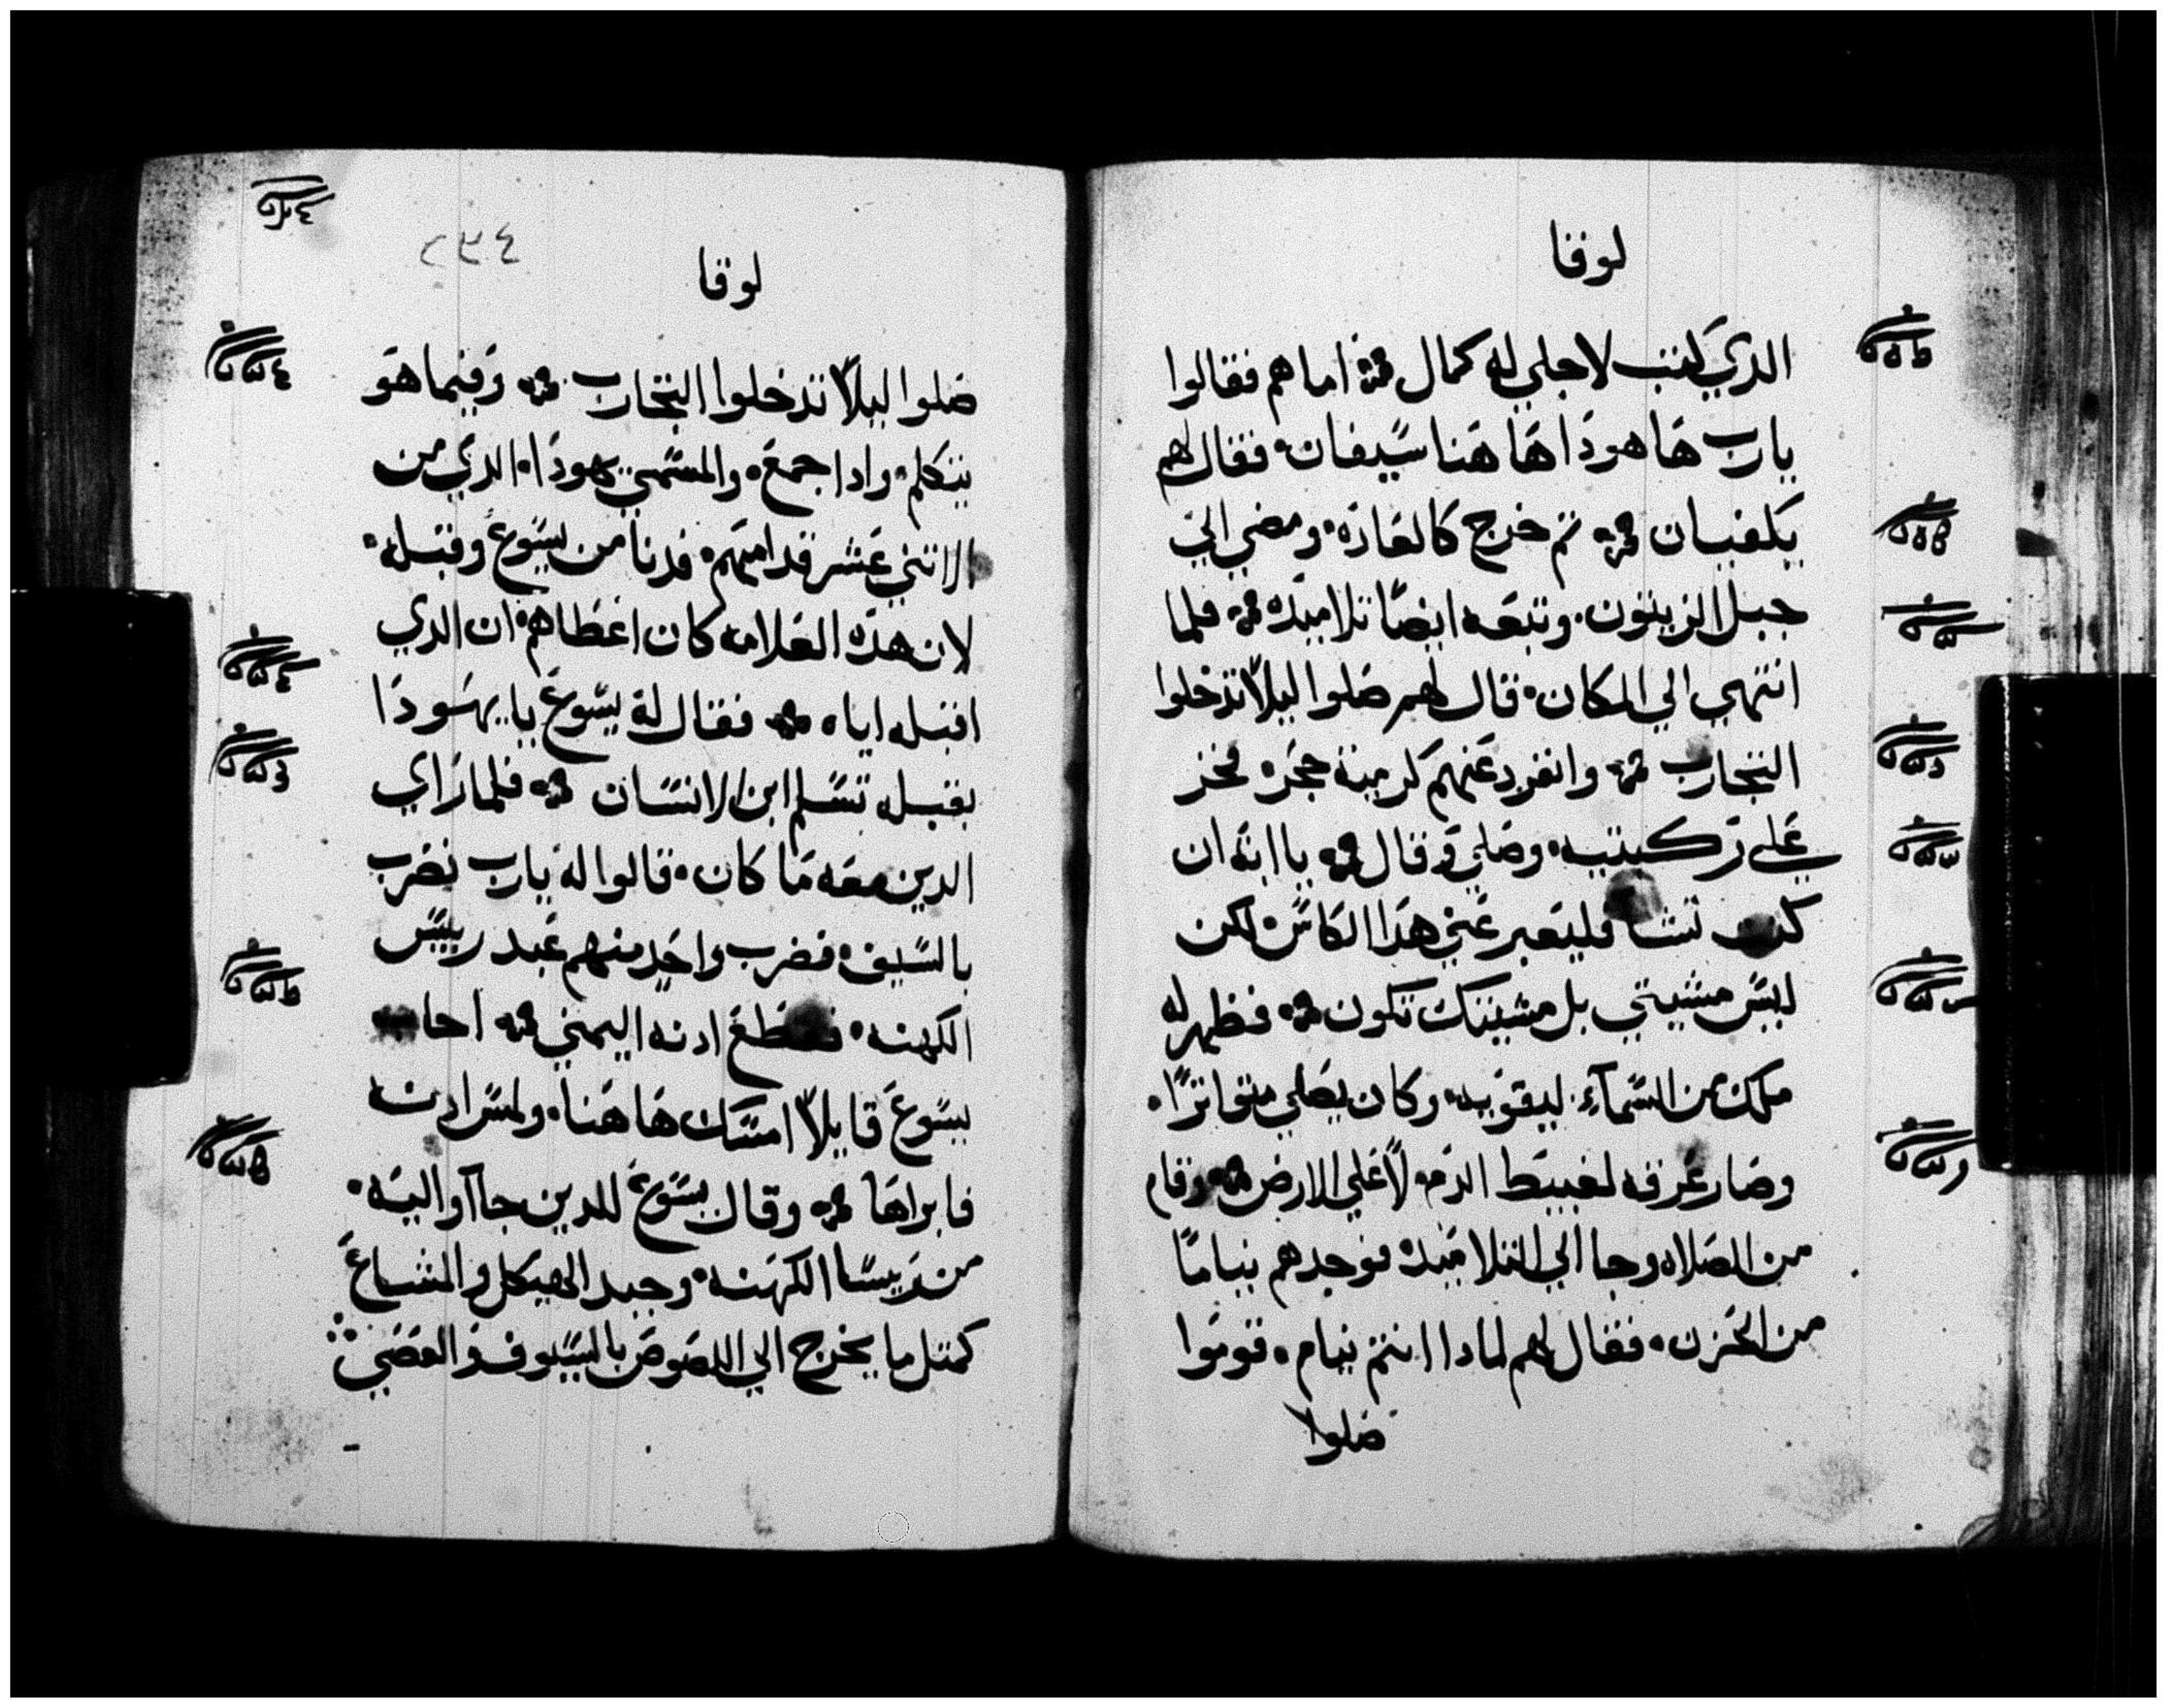 لوقا
الدي كتب لاجلي له كمال اما هم فقالوا
يارب ها هودا ها هنا سيفان فقال لهم
يكفيان تم خرج كالعاده ومضي الي
جبل الزيتون وتبعه ايضا تلاميده فلما
انتهي الي المكان قال لهم صلوا ليلا تدخلوا
التجارب وانفرد عنهم كرمية حجر فخر
علي ركبتيه وصلي وقال يا ابة ان
كنت تشا فليعبر عني هدا الكاس لكن
ليس مشيتي بل مشيتك تكون فظهر له
ملك من السمآء ليقويه وكان يصلي متواترًا
وصار عرقه لعبيط الدم علي الارض وقام
من الصلاه وجا الي التلاميده فوجدهم نيامًا
من الحزن فقال لهم لمادا انتم نيام قوموا
صلوا
٢٣٤
لوقا
صلوا ليلا تدخلوا التجارب وفيما هو
يتكلم وادا جمع والمسمي يهودا الدي من
الاتني عشر قدامهم فدنا من يسوع وقبله
لان هده العلامه كان اعطاهم ان الدي
اقبله اياه فقال له يسوع يا يهودا
بقبله تسلم ابن الانسان فلما راي
الدين معه ما كان قالوا له يارب نضرب
بالسيف فضرب واحد منهم عبد رييس
الكهنه فقطع ادنه اليمني
يسوع قايلا امسك ها هنا ولمس ادنه
فابراها وقال يسوع للدين جاآوا اليه
من رييسا الكهنه وجند الهيكل والمشايخ
كمتل ما يخرج الي اللصوص بالسيوف والعصي